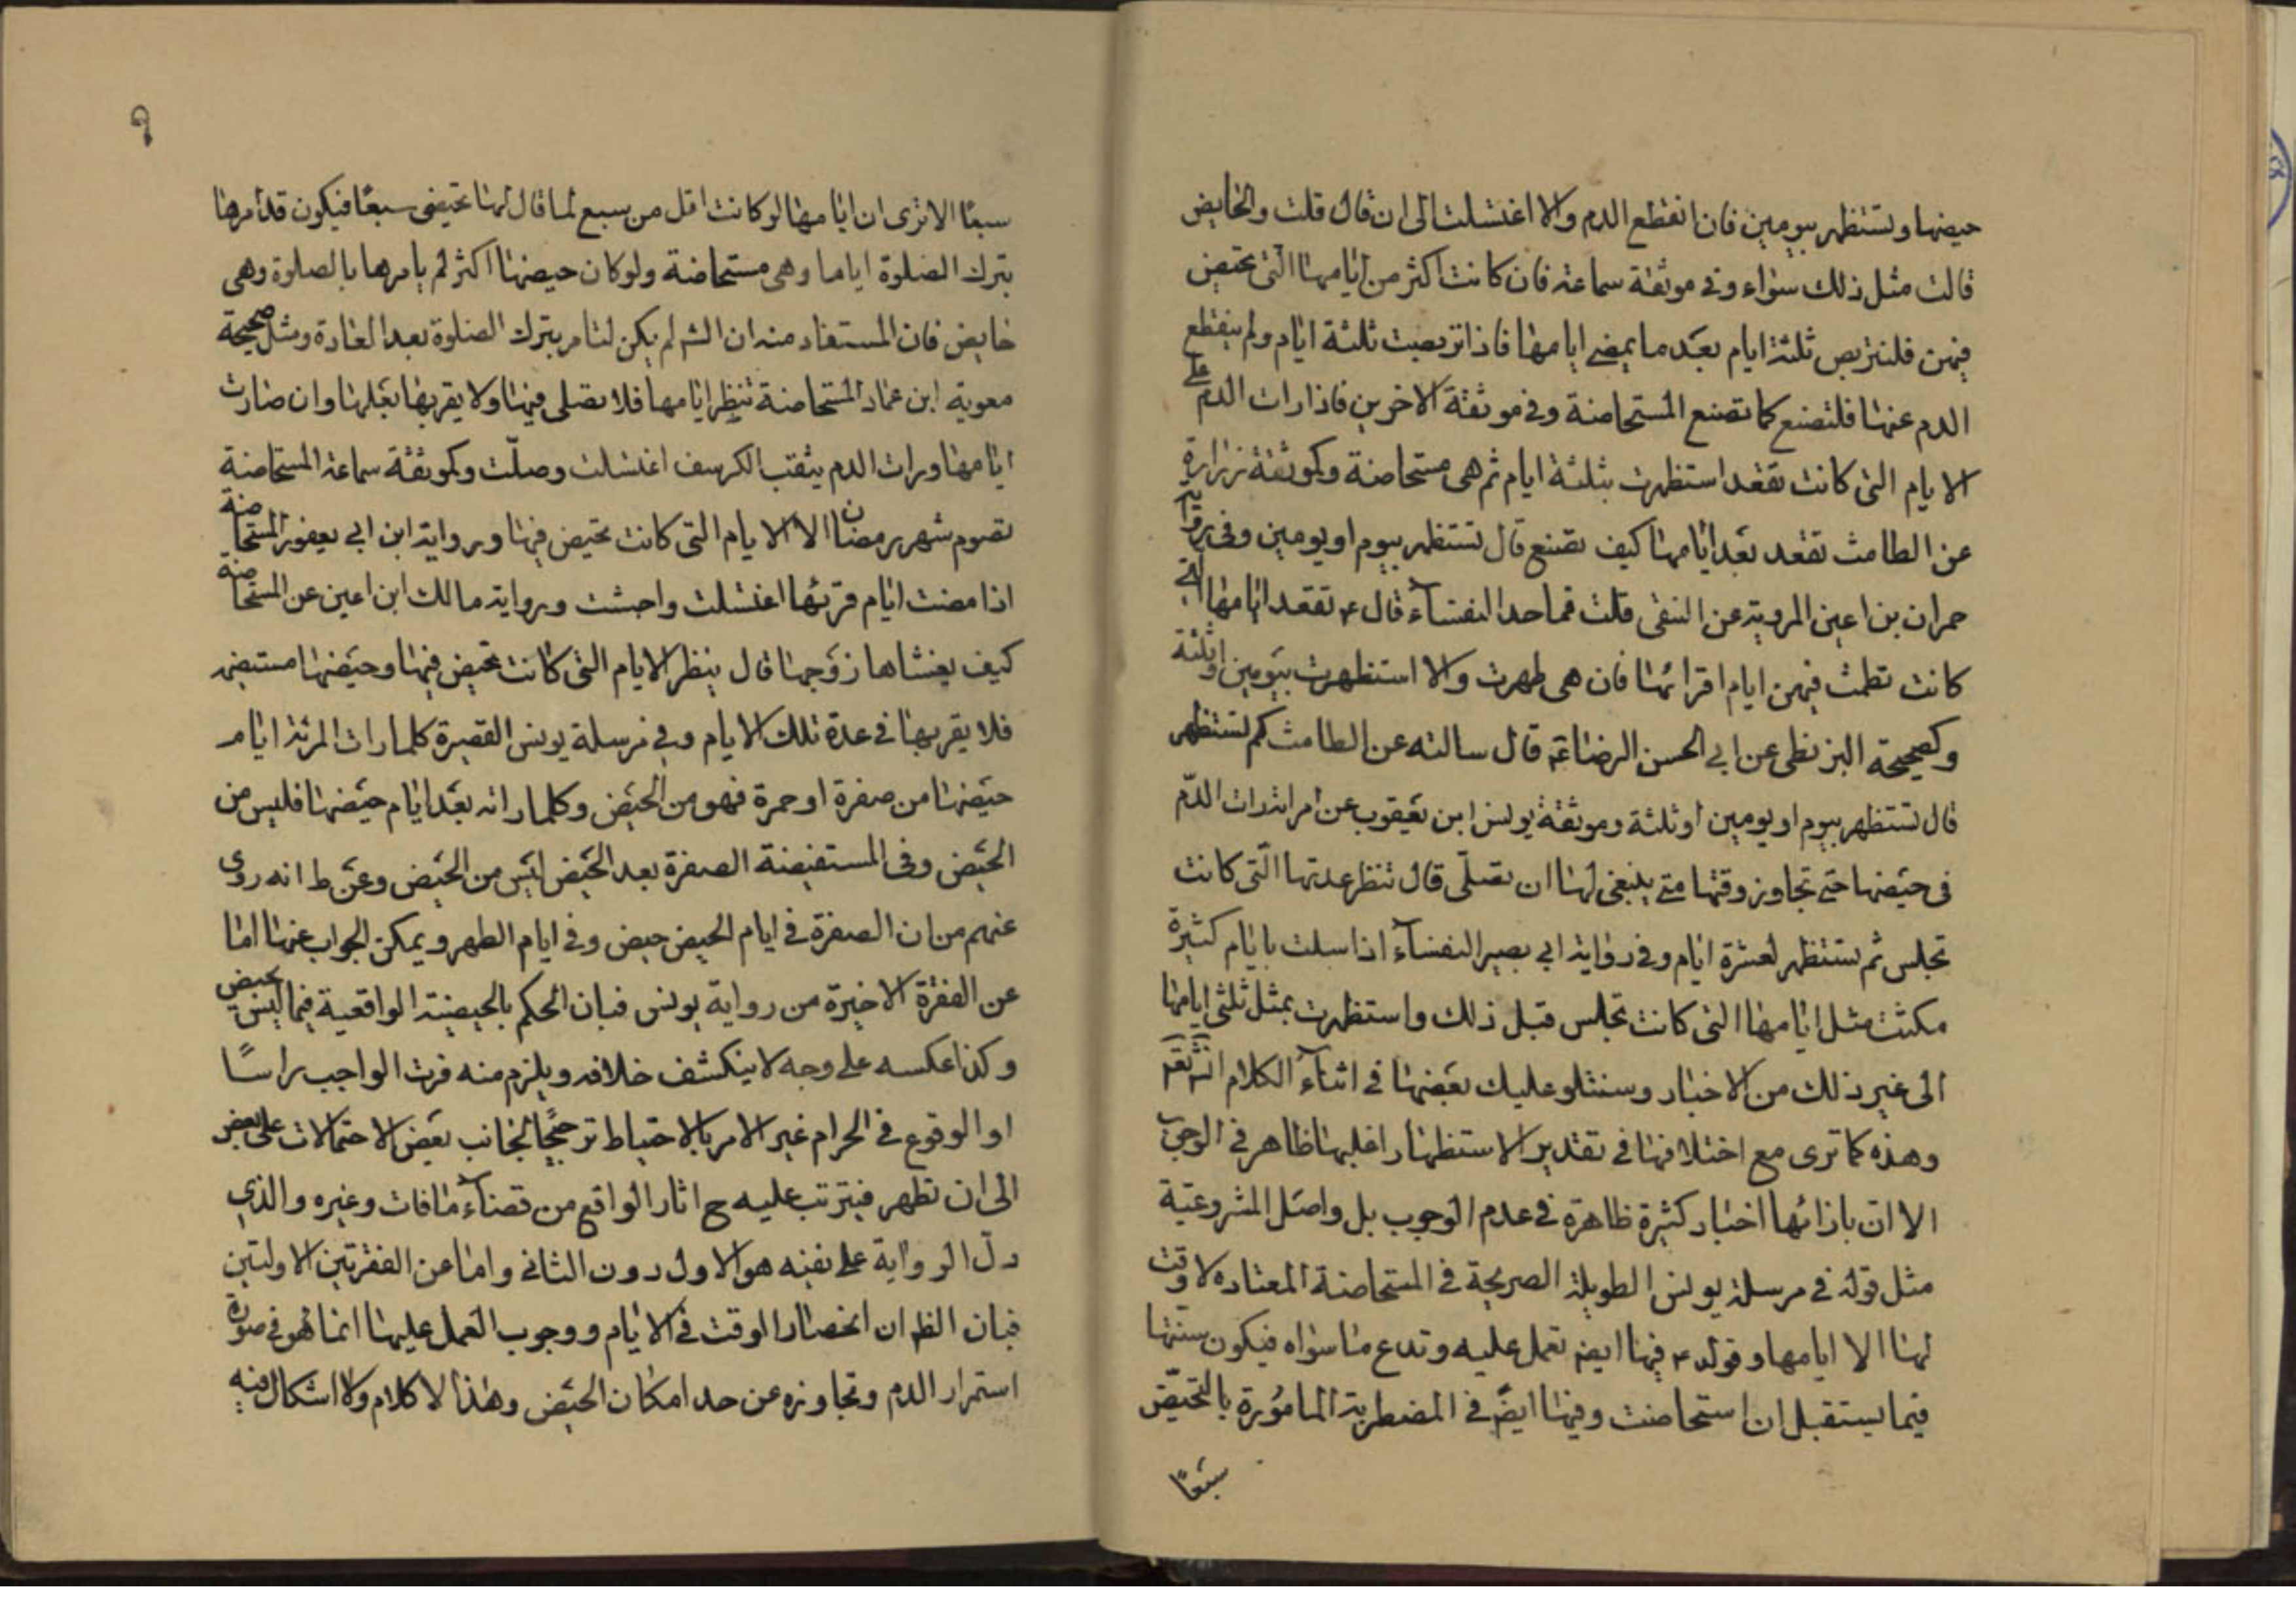 حيضها وتستظهر بيومين فان انقطع الدم والا اغتسلت الى ان قال قلت والحايض
قالت مثل ذلك سواء وفي موثقة سماعة فان كانت اكثر من ايامها التي تحيض
فيهن فلتتربص ثلثة ايام بعد ما يمضي ايامها فاذا تربصت ثلثة ايام ولم ينقطع
الدم عنها فلتصنع كما تصنع المستحاضة وفي موثقة الاخرين فاذا رات الدم على
الايام التي كانت تقعد استظهرت بثلثة ايام ثم هي مستحاضة وكموثقة زرارة
عن الطامث تقعد بعد ايامها كيف تصنع قال تستظهر بيوم او يومين وفي رواية
حمران بن اعين المروية عن المنتقى قلت فما حد النفساء قال ع تقعد ايامها التي
كانت تطمث فيهن ايام اقرائها فان هي طهرت والا استظهرت بيومين او ثلثة
وكصحيحة البزنطي عن ابي الحسن الرضا ع قال سالته عن الطامث كم تستظهر
قال تستظهر بيوم او يومين او ثلثة وموثقة يونس ابن يعقوب عن امراة رات الدم
في حيضها حتى تجاوز وقتها متى ينبغي لها ان تصلي قال تنظر عدتها التي كانت
تجلس ثم تستظهر لعشرة ايام وفي رواية ابي بصير النفساء اذا ابتليت بايام كثيرة
مكثت مثل ايامها التي كانت تجلس قبل ذلك واستظهرت بمثل ثلثي ايامها
الى غير ذلك من الاخبار وسنتلو عليك بعضها في اثناء الكلام انش تعم
وهذه كما ترى مع اختلافها في تقدير الاستظهار اغلبها ظاهر في الوجوب
الا ان بازائها اخبار كثيرة ظاهرة في عدم الوجوب بل واصل المشروعية
مثل قوله في مرسلة يونس الطويلة الصريحة في المستحاضة المعتاده لا وقت
لها الا ايامها وقوله ع فيها ايض تعمل عليه وتدع ما سواه فيكون سنتها
فيما يستقبل ان استحاضت وفيها ايض في المضطربة المامورة بالتحيض
سبعا
سبعا الا ترى ان ايامها لو كانت اقل من سبع لما قال لها تحيضي سبعا فيكون قد امرها
بترك الصلوة اياما وهي مستحاضة ولو كان حيضها اكثر لم يامرها بالصلوة وهي
حايض فان المستفاد منه ان الشم لم يكن لتامر بترك الصلوة بعد العادة ومثل صحيحة
معوية ابن عمار المستحاضة تنظر ايامها فلا تصلي فيها ولا يقربها بعلها وان صارت
ايامها ورات الدم يثقب الكرسف اغتسلت وصلت وكموثقة سماعة المستحاضة
تصوم شهر رمضان الا الايام التي كانت تحيض فيها ورواية ابن ابي يعفور المستحاضة
اذا مضت ايام قرئها اغتسلت واحتشت ورواية مالك ابن اعين عن المستحاضة
كيف يغشاها زوجها قال ينظر الايام التي كانت تحيض فيها وحيضها مستقيمة
فلا يقربها في عدة تلك الايام وفي مرسلة يونس القصيرة كلما رات المرئة ايام
حيضها من صفرة او حمرة فهو من الحيض وكلما راته بعد ايام حيضها فليس من
الحيض وفي المستفيضة الصفرة بعد الحيض ليس من الحيض وعن ط انه روى
عنهم من ان الصفرة في ايام الحيض حيض وفي ايام الطهر ويمكن الجواب عنها اما
عن الفقرة الاخيرة من رواية يونس فبان الحكم بالحيضية الواقعية فيما ليس بحيض
وكذا عكسه على وجه لا ينكشف خلافه ويلزم منه فوت الواجب راسا
او الوقوع في الحرام غير الامر بالاحتياط ترجيحا لجانب بعض الاحتمالات على بعض
الى ان تطهر فيترتب عليه ح اثار الواقع من قضاء ما فات وغيره والذي
دل الرواية على نفيه هو الاول دون الثاني واما عن الفقرتين الاولتين
فبان الظم ان انحصار الوقت في الايام ووجوب العمل عليها انما هو في صورة
استمرار الدم وتجاوزه عن حد امكان الحيض وهذا لا كلام ولا اشكال فيه